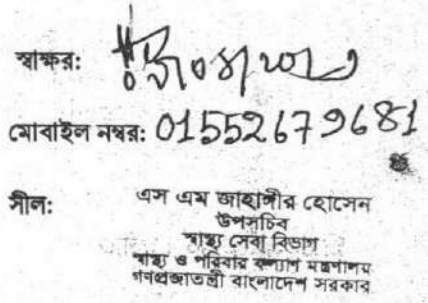 স্বাক্ষর:
মোবাইল নম্বর: 01552679681
সীল: এস এম জাহাঙ্গীর হোসেন
উপসচিব
স্বাস্থ্য সেবা বিভাগ
স্বাস্থ্য ও পরিবার কল্যাণ মন্ত্রণালয়
গণপ্রজাতন্ত্রী বাংলাদেশ সরকার